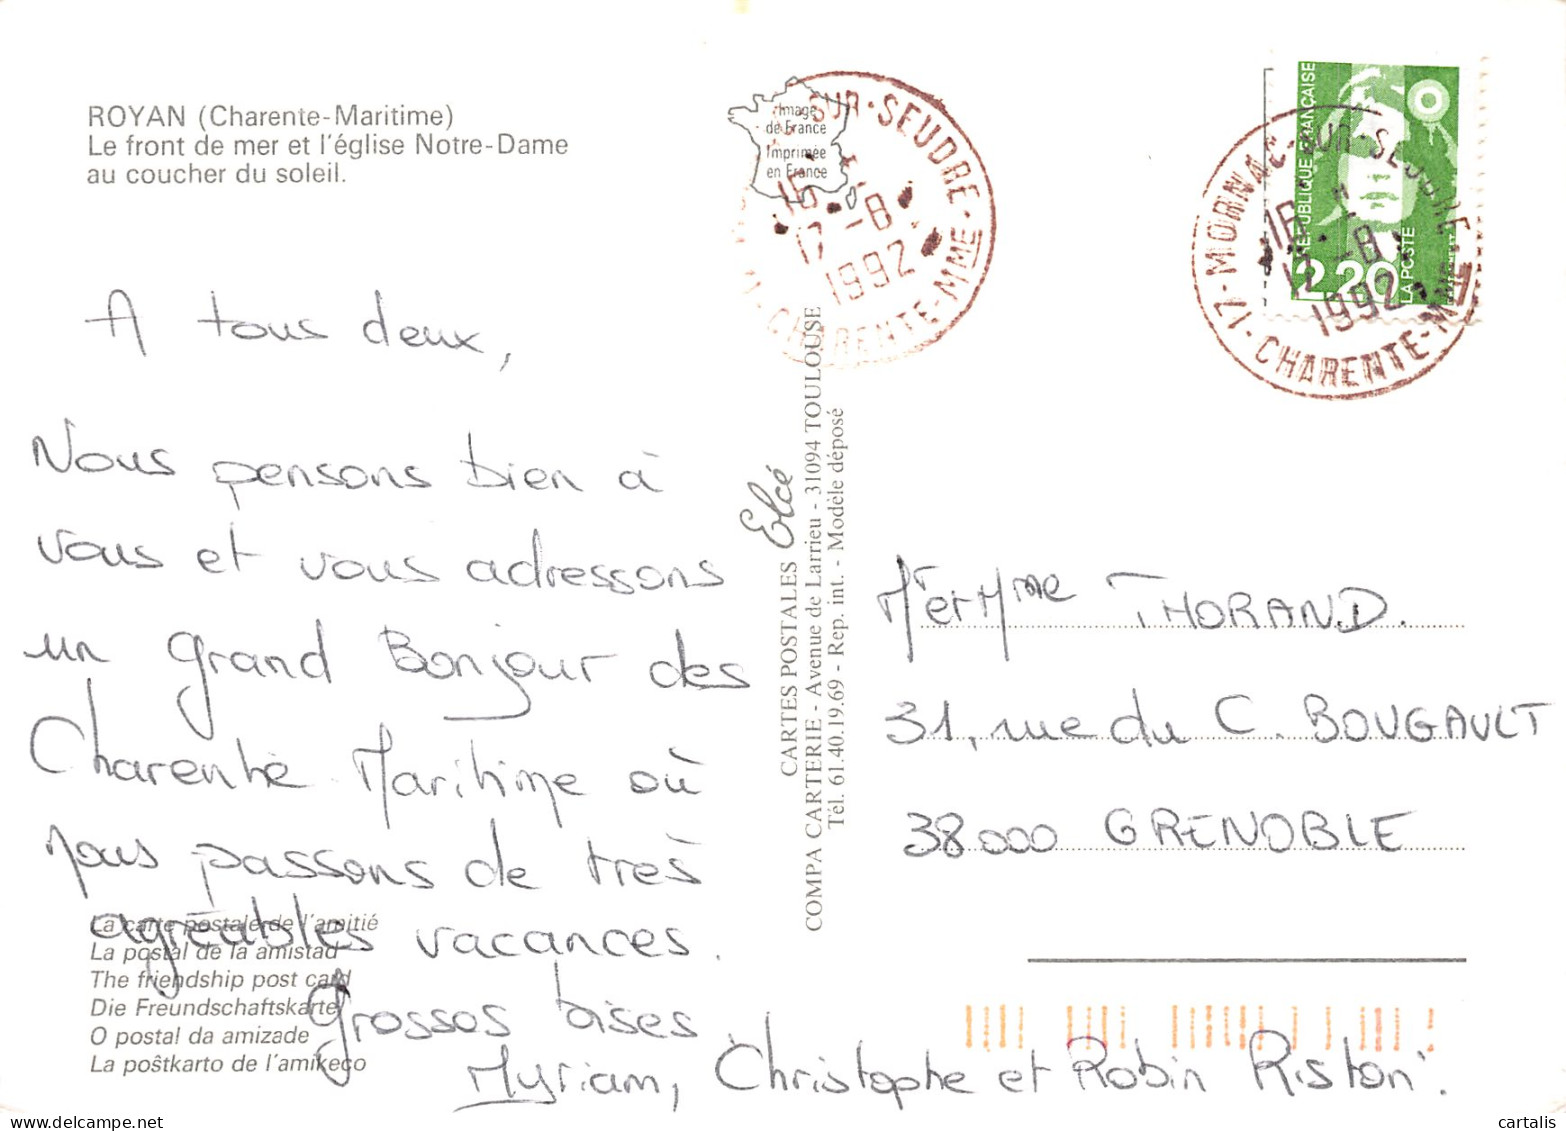 ROYAN (Charente-Maritime)
Le front de mer et l'église Notre-Dame
au coucher du soleil.
A tous deux,
Nous pensons bien à
vous et vous adressons
un grand Bonjour des
Charente Maritime où
nous passons de très
agréables vacances.
Grosses bises
Myriam, Christophe et Robin Riston.
La carte postale de l'amitié
La postal de la amistad
The friendship post card
Die Freundschaftskarte
O postal da amizade
La poŝtkarto de l'amikeco
Image
de France
Imprimée
en France
SUR-SEUDRE
16
17-8
1992
17 CHARENTE-MME
CARTES POSTALES Elcé
COMPA CARTERIE - Avenue de Larrieu - 31094 TOULOUSE
Tél. 61.40.19.69 - Rep. int. - Modèle déposé
RÉPUBLIQUE FRANÇAISE
2,20
LA POSTE
17-MORNAC-SUR-SEUDRE
16
17-8
1992
CHARENTE-MME
Mr et Mme THORAND.
31, rue du C. BOUGAULT
38000 GRENOBLE
cartalis